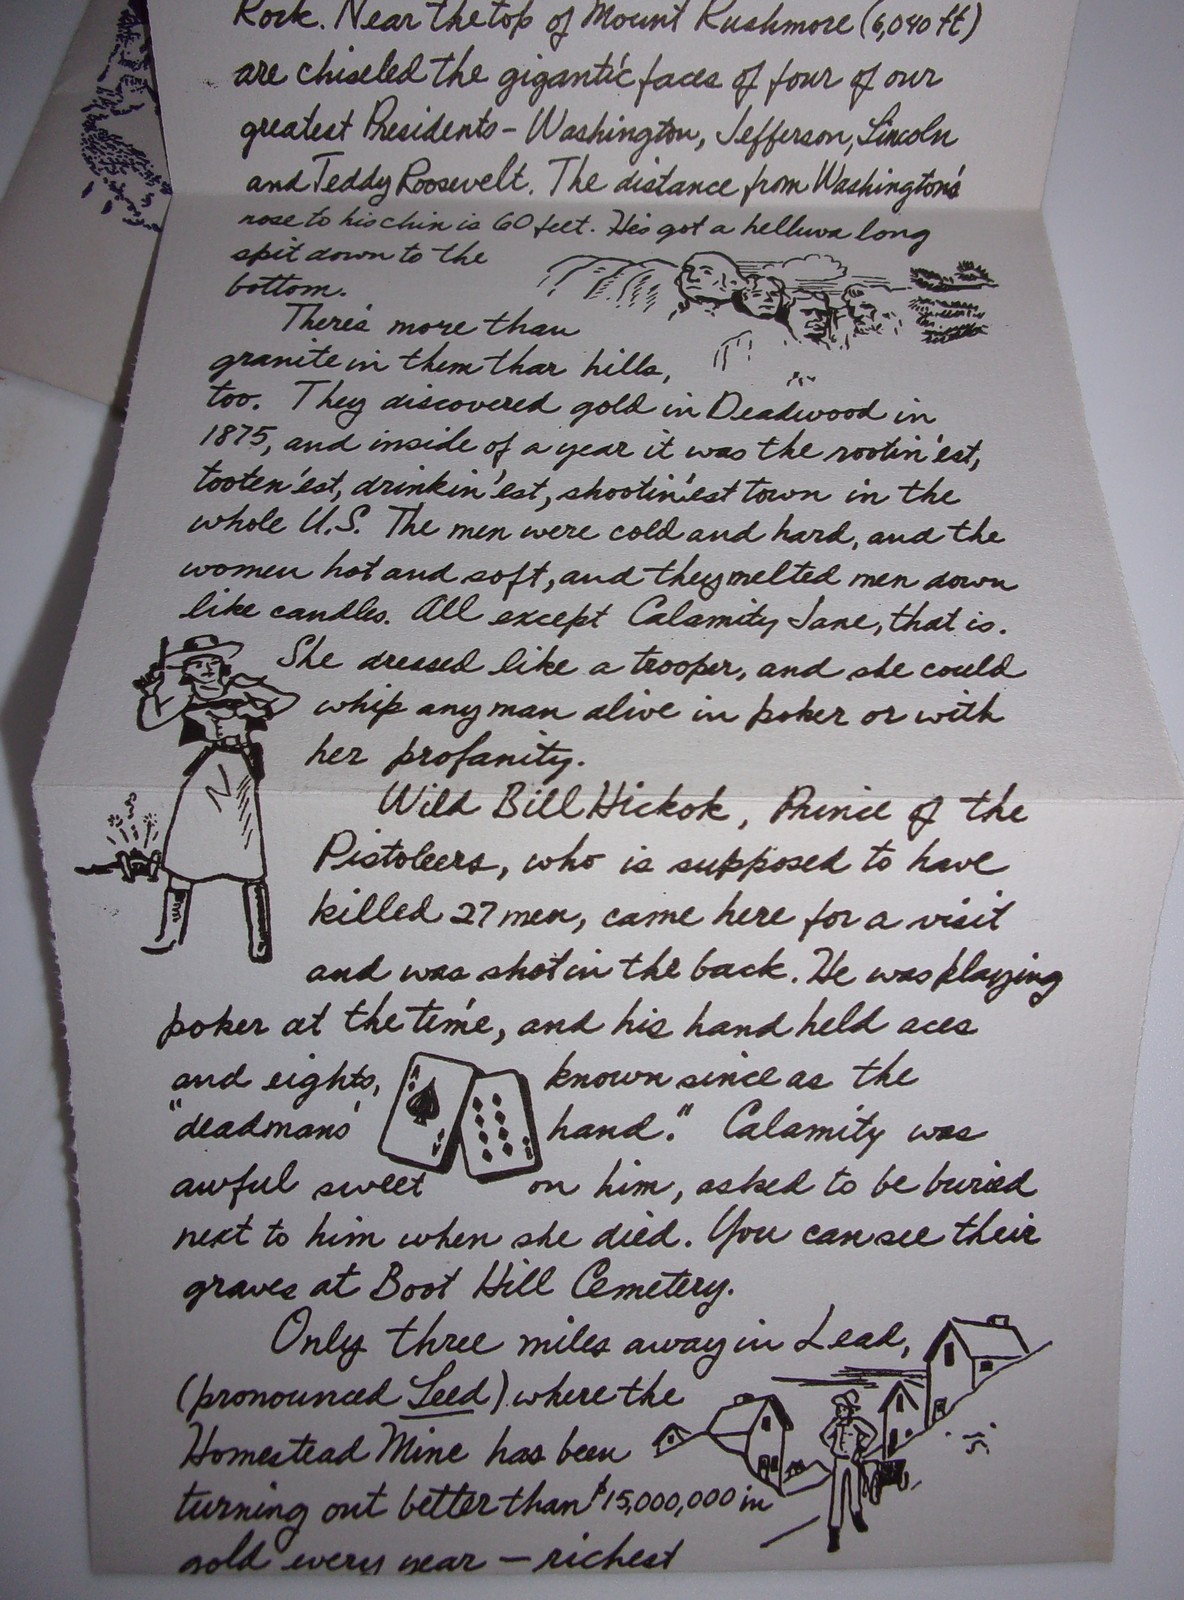 Rock. Near the top of Mount Rushmore (6,040 ft)
are chiseled the gigantic faces of four of our
greatest Presidents - Washington, Jefferson, Lincoln
and Teddy Roosevelt. The distance from Washington's
nose to his chin is 60 feet. He's got a helluva long
spit down to the
bottom.
There's more than
granite in them thar hills,
too. They discovered gold in Deadwood in
1875, and inside of a year it was the rootin'est,
tooten'est, drinkin'est, shootin'est town in the
whole U.S. The men were cold and hard, and the
women hot and soft, and they melted men down
like candles. All except Calamity Jane, that is.
She dressed like a trooper, and she could
whip any man alive in poker or with
her profanity.
Wild Bill Hickok, Prince of the
Pistoleers, who is supposed to have
killed 27 men, came here for a visit
and was shot in the back. He was playing
poker at the time, and his hand held aces
and eights, known since as the
"deadman's hand." Calamity was
awful sweet on him, asked to be buried
next to him when she died. You can see their
graves at Boot Hill Cemetery.
Only three miles away in Lead,
(pronounced Leed) where the
Homestead Mine has been
turning out better than $15,000,000 in
gold every year - richest